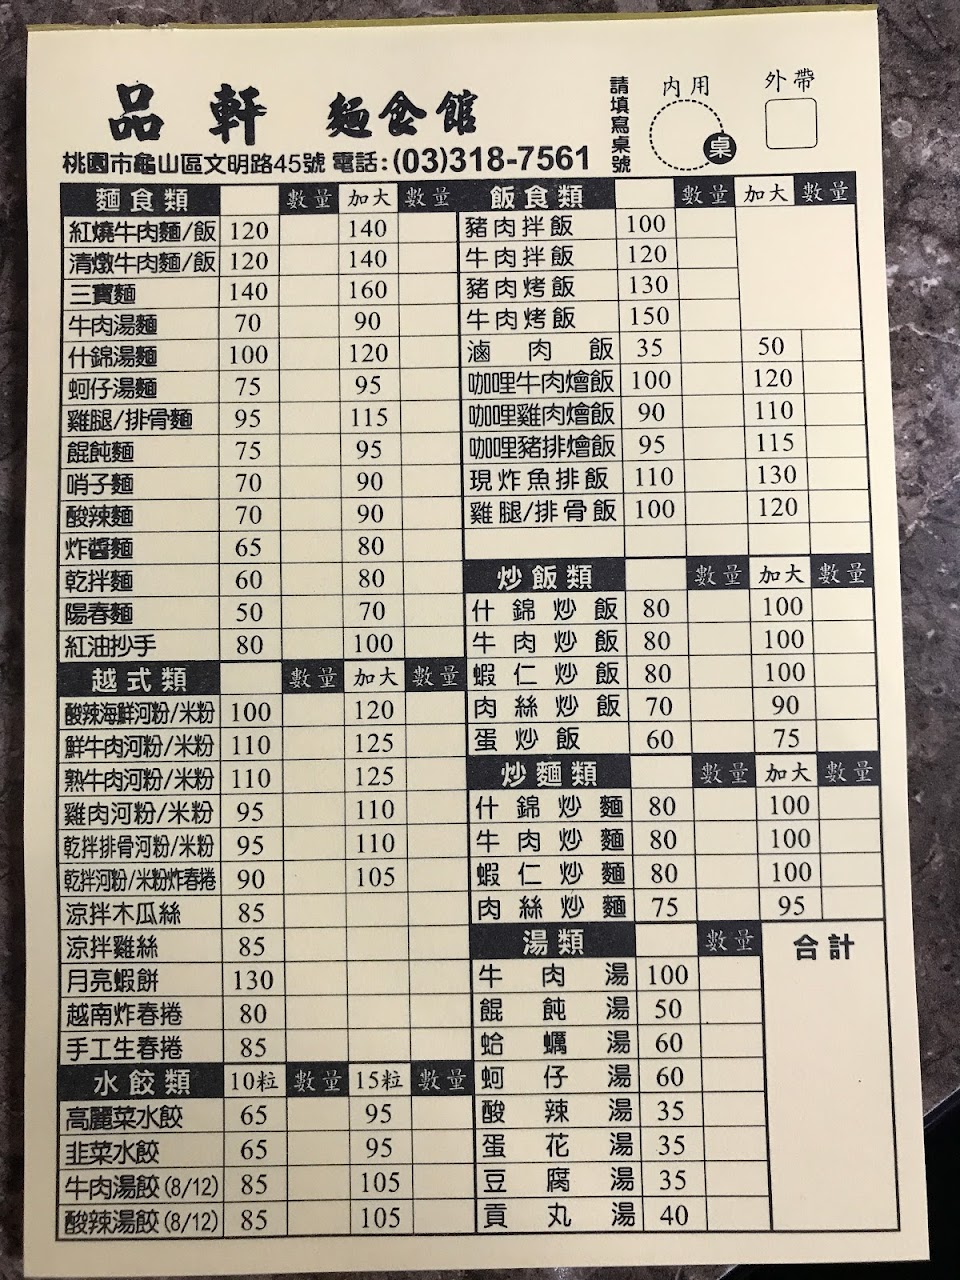 品軒 麵食館
桃園市龜山區文明路45號 電話:(03)318-7561
請填寫桌號
內用
桌
外帶
麵食類 數量 加大 數量
紅燒牛肉麵/飯 120 140
清燉牛肉麵/飯 120 140
三寶麵 140 160
牛肉湯麵 70 90
什錦湯麵 100 120
蚵仔湯麵 75 95
雞腿/排骨麵 95 115
餛飩麵 75 95
哨子麵 70 90
酸辣麵 70 90
炸醬麵 65 80
乾拌麵 60 80
陽春麵 50 70
紅油抄手 80 100
越式類 數量 加大 數量
酸辣海鮮河粉/米粉 100 120
鮮牛肉河粉/米粉 110 125
熟牛肉河粉/米粉 110 125
雞肉河粉/米粉 95 110
乾拌排骨河粉/米粉 95 110
乾拌河粉/米粉炸春捲 90 105
涼拌木瓜絲 85
涼拌雞絲 85
月亮蝦餅 130
越南炸春捲 80
手工生春捲 85
水餃類 10粒 數量 15粒 數量
高麗菜水餃 65 95
韭菜水餃 65 95
牛肉湯餃(8/12) 85 105
酸辣湯餃(8/12) 85 105
飯食類 數量 加大 數量
豬肉拌飯 100
牛肉拌飯 120
豬肉烤飯 130
牛肉烤飯 150
滷肉飯 35 50
咖哩牛肉燴飯 100 120
咖哩雞肉燴飯 90 110
咖哩豬排燴飯 95 115
現炸魚排飯 110 130
雞腿/排骨飯 100 120
炒飯類 數量 加大 數量
什錦炒飯 80 100
牛肉炒飯 80 100
蝦仁炒飯 80 100
肉絲炒飯 70 90
蛋炒飯 60 75
炒麵類 數量 加大 數量
什錦炒麵 80 100
牛肉炒麵 80 100
蝦仁炒麵 80 100
肉絲炒麵 75 95
湯類 數量
牛肉湯 100
餛飩湯 50
蛤蠣湯 60
蚵仔湯 60
酸辣湯 35
蛋花湯 35
豆腐湯 35
貢丸湯 40
合計